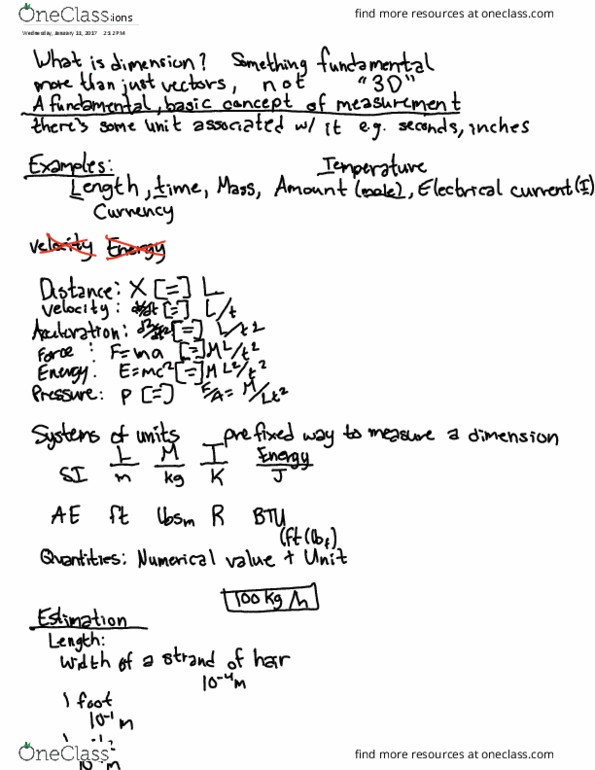 OneClass
find more resources at oneclass.com
What is dimension? Something fundamental
more than just vectors, not "3D"
A fundamental, basic concept of measurement
there's some unit associated w/ it e.g. seconds, inches
Examples: Temperature
Length, time, Mass, Amount (mole), Electrical current (I)
Currency
velocity Energy
Distance: X [=] L
Velocity: dx/dt [=] L/t
Acceleration: [=] L/t2
Force : F=ma [=] ML/t²
Energy: E=mc² [=] ML²/t²
Pressure: P [=] F/A= M/Lt²
Systems of units prefixed way to measure a dimension
L M T Energy
SI m kg K J
AE ft lbsm R BTU
(ft(lbf)
Quantities: Numerical value + Unit
100 kg/h
Estimation
Length:
Width of a strand of hair
10⁻⁴m
1 foot
10⁻¹ m
OneClass
find more resources at oneclass.com